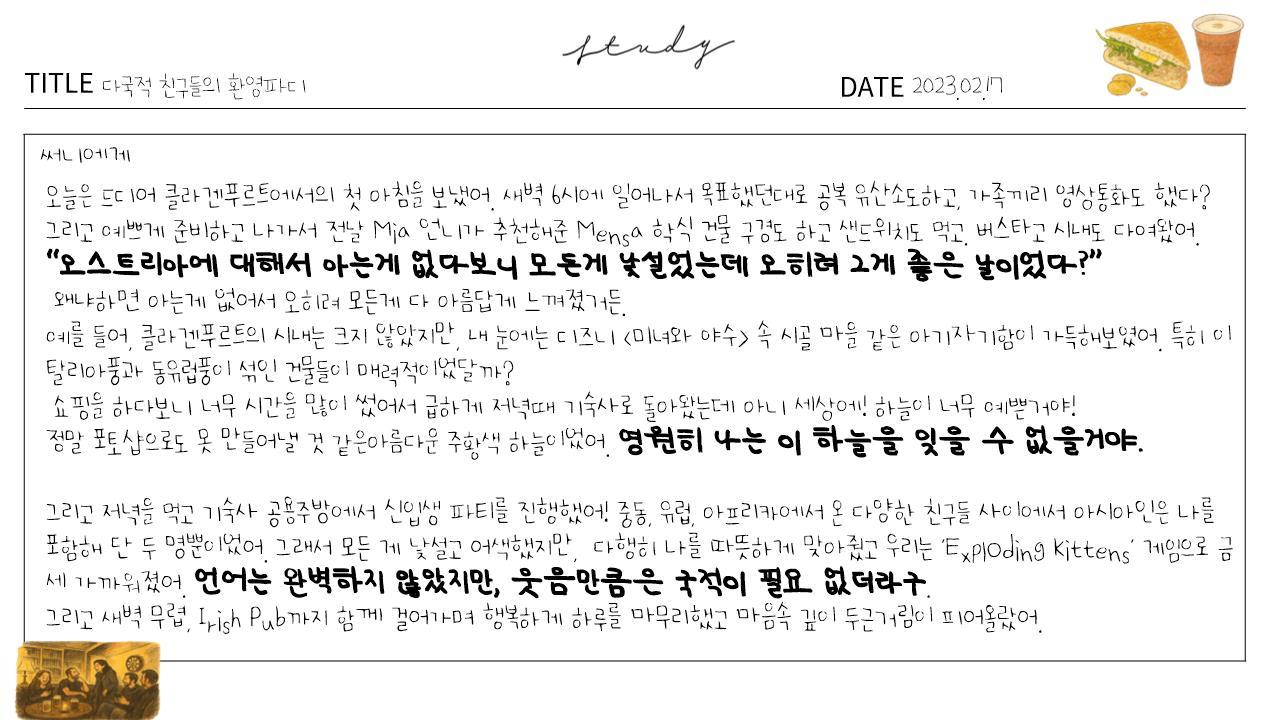 study
TITLE 다국적 친구들의 환영파티
DATE 2023.02.17
써니에게
오늘은 드디어 클라겐푸르트에서의 첫 아침을 보냈어. 새벽 6시에 일어나서 목표했던대로 공복 유산소도하고, 가족끼리 영상통화도 했다?
그리고 예쁘게 준비하고 나가서 전날 Mia 언니가 추천해준 Mensa 학식 건물 구경도 하고 샌드위치도 먹고. 버스타고 시내도 다여왔어.
“오스트리아에 대해서 아는게 없다보니 모든게 낯설었는데 오히려 그게 좋은 날이었다?”
왜냐하면 아는게 없어서 오히려 모든게 다 아름답게 느껴졌거든.
예를 들어, 클라겐푸르트의 시내는 크지 않았지만, 내 눈에는 디즈니 <미녀와 야수> 속 시골 마을 같은 아기자기함이 가득해보였어. 특히 이
탈리아풍과 동유럽풍이 섞인 건물들이 매력적이었달까?
쇼핑을 하다보니 너무 시간을 많이 썼어서 급하게 저녁때 기숙사로 돌아왔는데 아니 세상에! 하늘이 너무 예쁜거야!
정말 포토샵으로도 못 만들어낼 것 같은아름다운 주황색 하늘이었어. 영원히 나는 이 하늘을 잊을 수 없을거야.
그리고 저녁을 먹고 기숙사 공용주방에서 신입생 파티를 진행했어! 중동, 유럽, 아프리카에서 온 다양한 친구들 사이에서 아시아인은 나를
포함해 단 두 명뿐이었어. 그래서 모든 게 낯설고 어색했지만, 다행히 나를 따뜻하게 맞아줬고 우리는 'Exploding Kittens' 게임으로 금
세 가까워졌어. 언어는 완벽하지 않았지만, 웃음만큼은 국적이 필요 없더라구.
그리고 새벽 무렵, Irish Pub까지 함께 걸어가며 행복하게 하루를 마무리했고 마음속 깊이 두근거림이 피어올랐어.